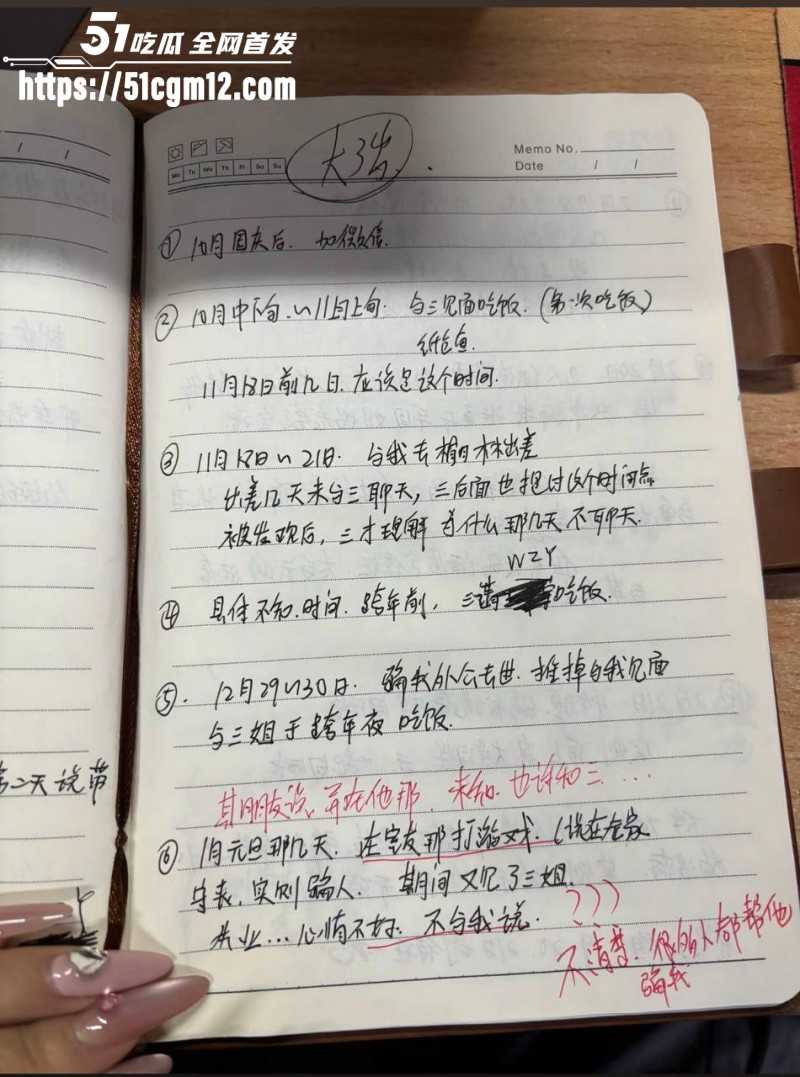 51吃瓜 全网首发
https://51cgm12.com
大3出.
Memo No.
Date / /
Mo Tu We Th Fr Sa Su
① 10月国庆后. 加微信.
② 10月中下旬~11月上旬. 与三见面吃饭. (第一次吃饭)
纸包鱼.
11月18日前几日. 应该是这个时间.
③ 11月18日~21日. 与我去 出差
出差几天未与三聊天, 三后面也提过这个时间点
被发现后, 三才理解 为什么那几天不聊天.
WZY
④ 具体不知.时间. 跨年前, 三请 吃饭.
⑤. 12月29~30日. 骗我外公去世. 推掉与我见面
与三姐于跨年夜 吃饭.
其朋友说, 弃在他那, 未知. 也许和三...
⑥ 1月元旦那几天. 在室友那打游戏. (说在
, 实则骗人. 期间又见了三姐.
失业... 心情不好. 不与我说. ???
不清楚. 很多人都帮他
骗我
第二天说